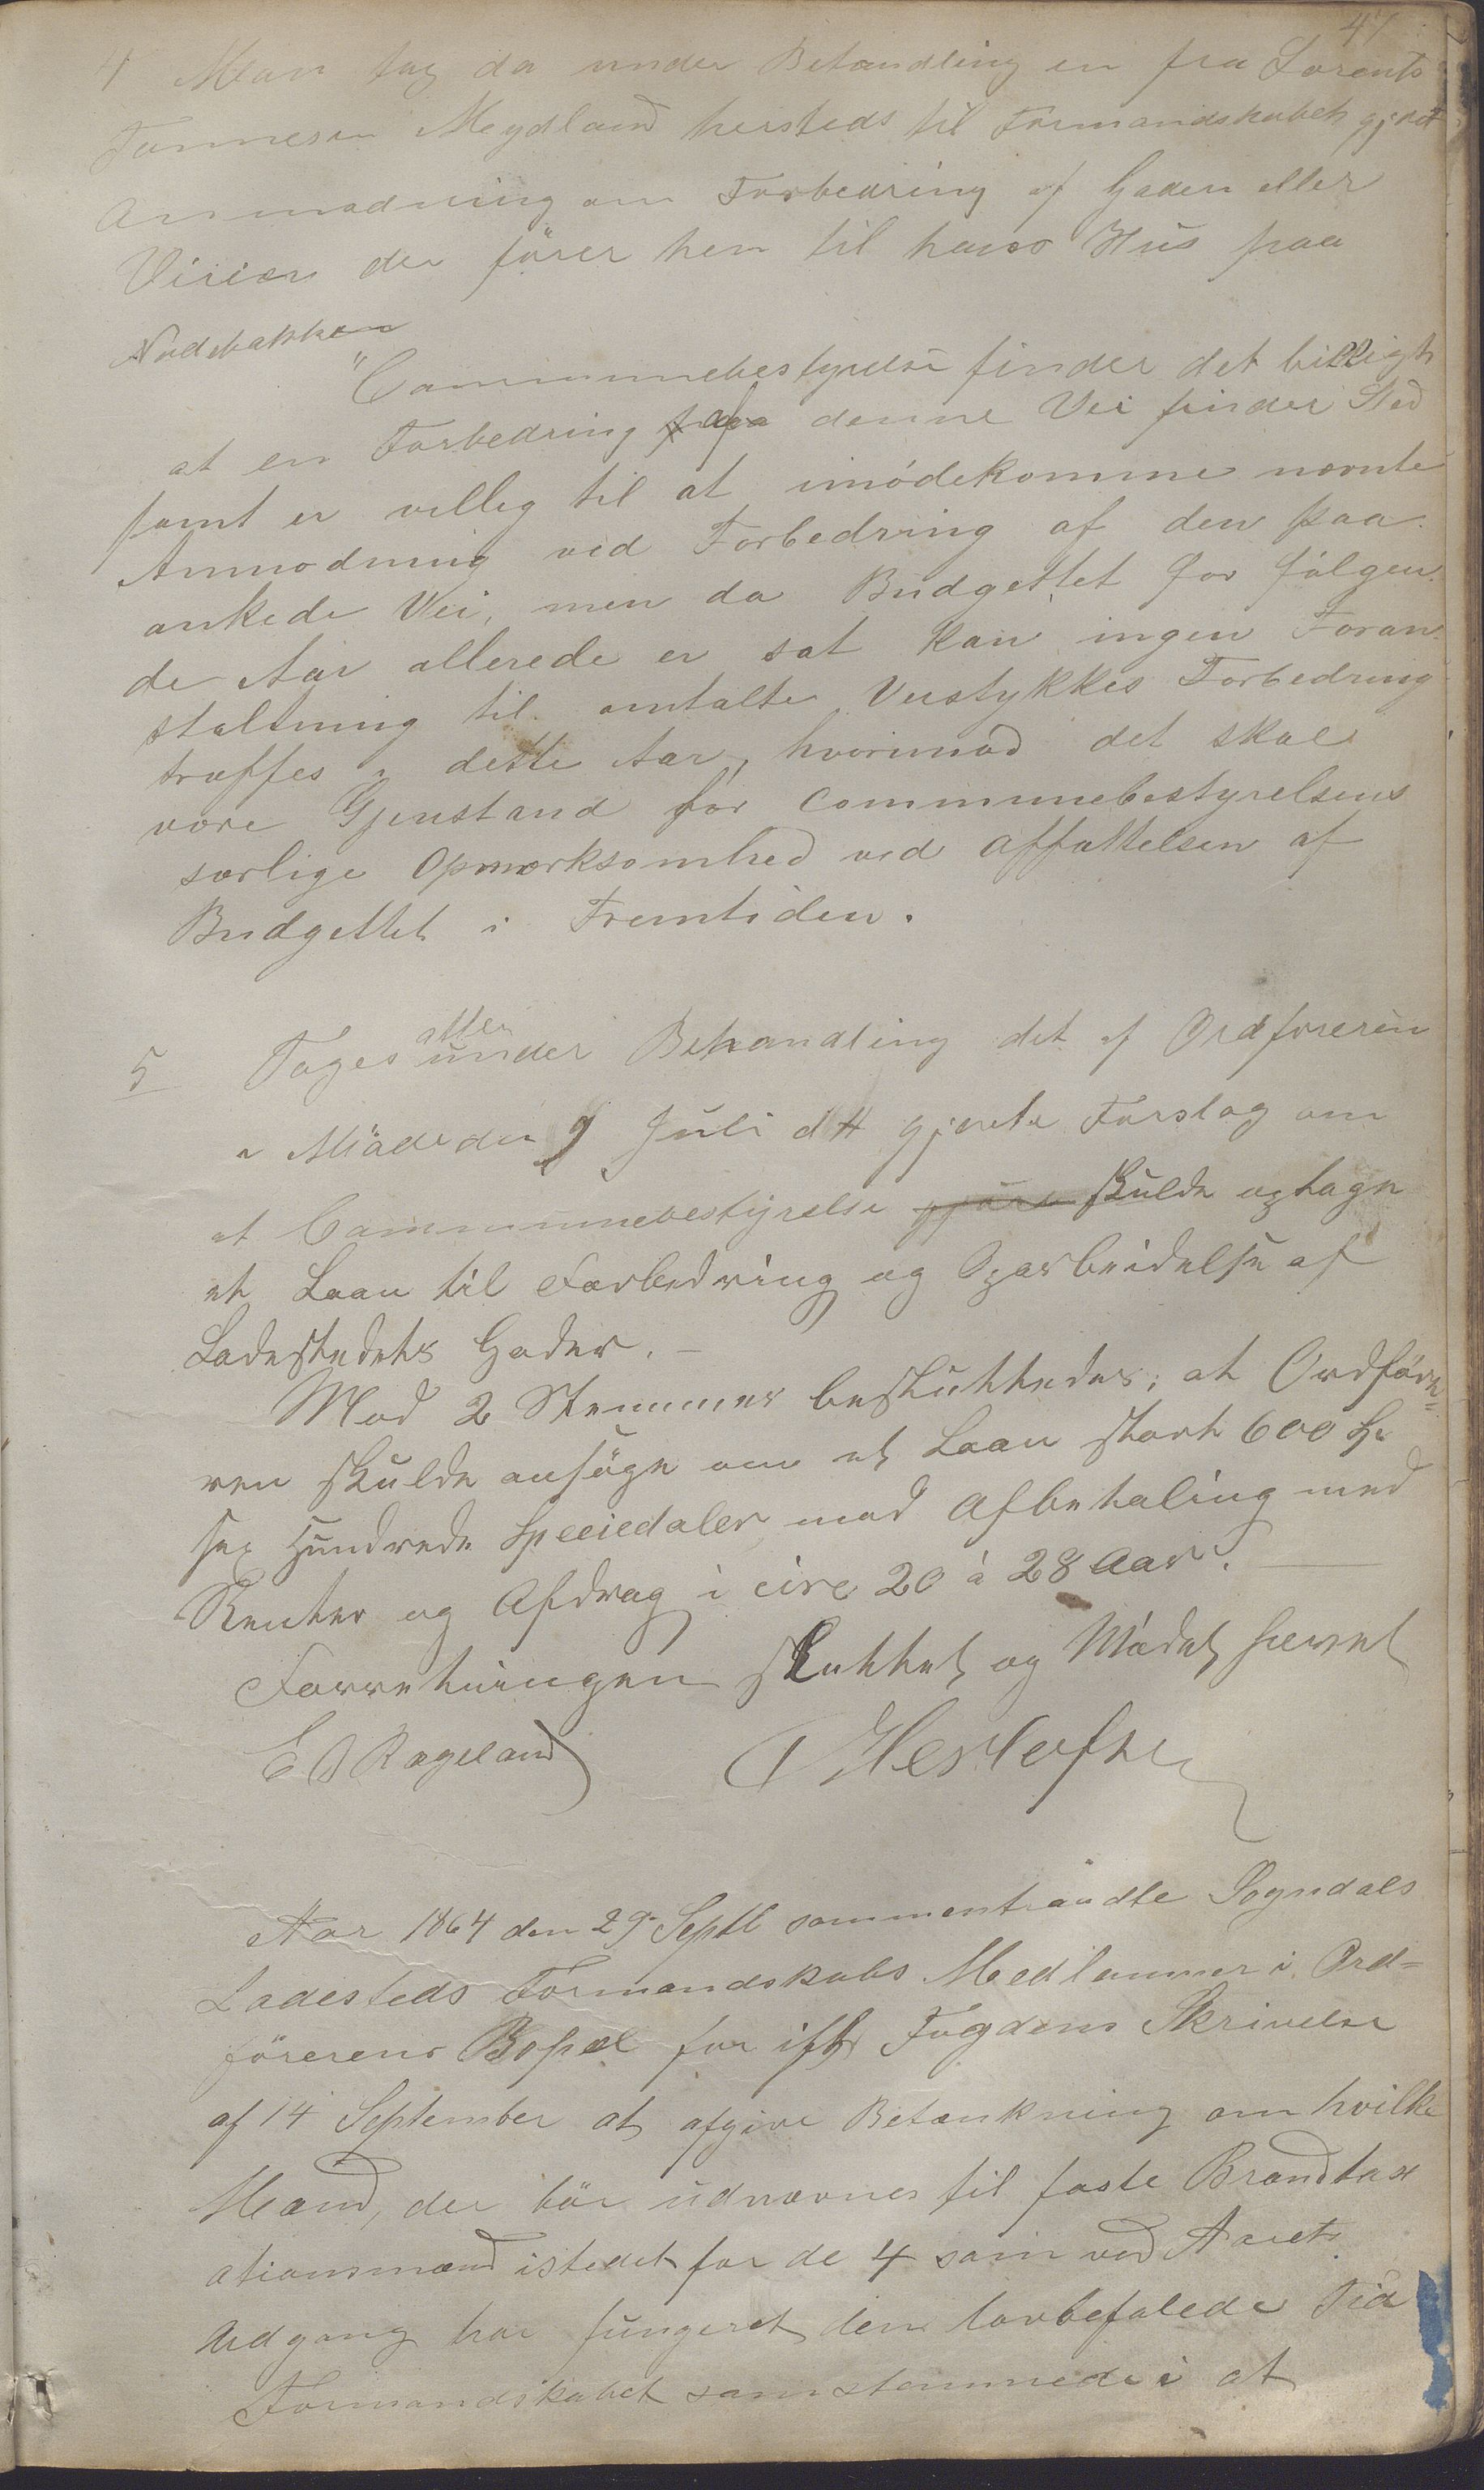 47
4 Man tog da under Behandling en fra Lorents
Tønnesen Meydland hersteds til Formandskabet gjort
Anmodning om Forbedring af Gaden eller
Veien der fører hen til hans Hus paa
"Communebestyrelse finder det billigt
at en Forbedring af denne Vei finder Sted
samt er villig til at imödekomme nævnte
Anmodning ved Forbedring af den paa
ankede Vei, men da Budgettet for fölgen
de Aar allerede er sat kan ingen Foran
staltning til omtalte Veistykkes Forbedring
træffes i dette Aar, hvorimod det skal
være Gjenstand for Communebestyrelsens
særlige Opmærksomhed ved Affattelsen af
Budgettet i Fremtiden.
5 Toges atter under Behandling det af Ordføreren
i Möde den 9 Juli d A gjorte Forslag om
at Communebestyrelse skulde optage
et Laan til Forbedring og Oparbeidelse af
Ladestedets Gader. –
Mod 2 Stemmer besluttedes; at Ordföre=
ren skulde ansöge om et Laan stort 600 Sp
sex Hundrede Speciedaler mod Afbetaling med
Renter og Afdrag i circ 20 à 28 Aar. –
Forretningen sluttet og Mödet hævet
E Rageland
Aar 1864 den 29 Septb sammentraadte Sogndals
Ladesteds Formandskabs Medlemmer i Ord=
förerens Bopæl for ifl Fogdens Skrivelse
af 14 September at afgive Betænkning om hvilke
Mænd, der bör udnævnes til faste Brandtax
ationsmænd istedet for de 4 som ved Aarets
Udgang har fungeret den lovbefalede Tid
Formandskabet samstemmede i at